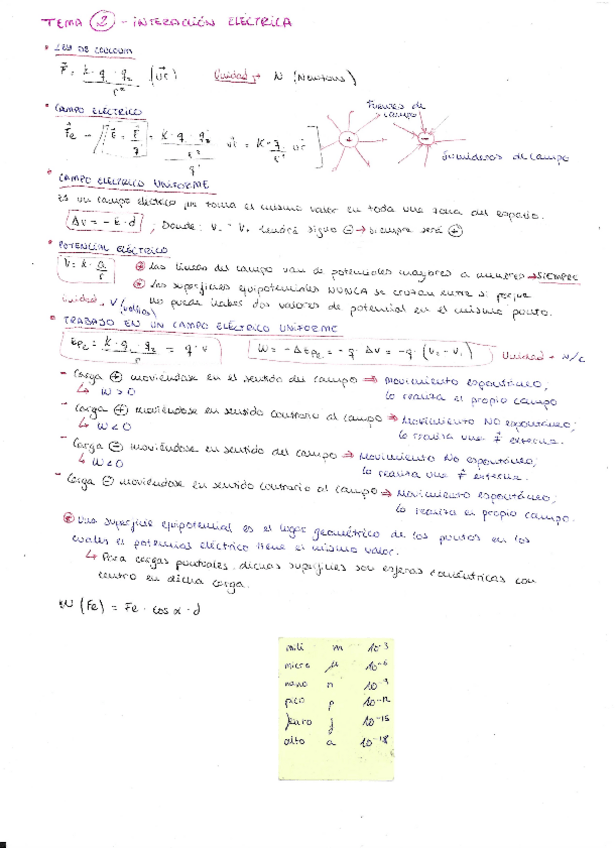 TEMA 2 - INTERACCIÓN ELÉCTRICA
• LEY DE COULOMB
F = K · q₁ · q₂ / r² (ur) Unidad → N (Newtons)
• CAMPO ELÉCTRICO
Fuentes de campo
Fe → E = F / q = K · q · q₂ / r² / q ur = K · q / r² ur
+ -
Sumideros de campo
• CAMPO ELÉCTRICO UNIFORME
Es un campo eléctrico que toma el mismo valor en toda una zona del espacio.
ΔV = - E · d , Donde: V₂ - V₁ tendrá signo ⊖ → siempre será ⊕
• POTENCIAL ELÉCTRICO
V = K · Q / r ⊛ Las líneas del campo van de potenciales mayores a menores → SIEMPRE
⊛ Las superficies equipotenciales NUNCA se cruzan entre si porque
Unidad → V (voltios) No puede haber dos valores de potencial en el mismo punto.
• TRABAJO EN UN CAMPO ELÉCTRICO UNIFORME
Epe = K · q₁ · q₂ / r = q · V W = - ΔEpe = - q · ΔV = - q · (V₂ - V₁) Unidad → N/C
- Carga ⊕ moviéndose en el sentido del campo → Movimiento espontáneo;
↳ W > 0 lo realiza el propio campo
- Carga ⊕ moviéndose en sentido contrario al campo → Movimiento NO espontáneo;
↳ W < 0 lo realiza una F externa.
- Carga ⊖ moviéndose en sentido del campo → Movimiento No espontáneo;
↳ W < 0 lo realiza una F externa.
- Carga ⊖ moviéndose en sentido contrario al campo → Movimiento espontáneo;
lo realiza el propio campo.
⊛ Una superficie equipotencial es el lugar geométrico de los puntos en los
cuales el potencial eléctrico tiene el mismo valor.
↳ Para cargas puntuales, dichas superficies son esferas concéntricas con
centro en dicha carga.
W (Fe) = Fe · cos α · d
mili m 10⁻³
micro μ 10⁻⁶
nano n 10⁻⁹
pico p 10⁻¹²
femto f 10⁻¹⁵
atto a 10⁻¹⁸